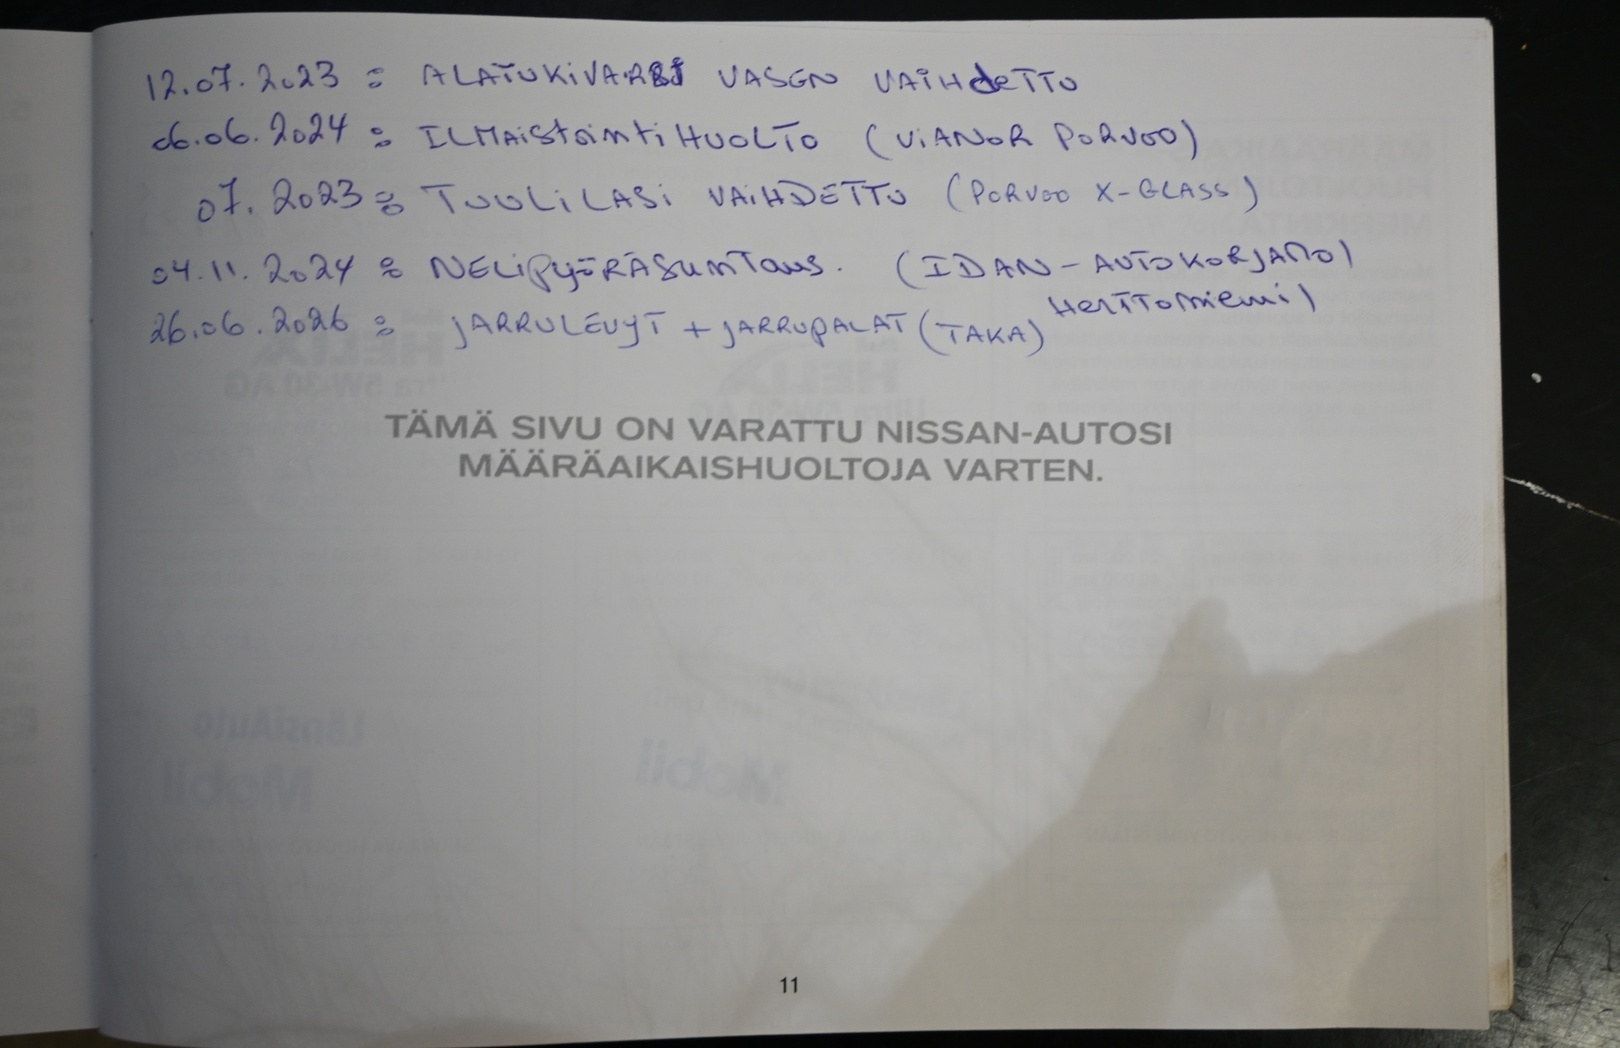 12.07.2023 : ALATUKIVARSI VASEN VAIHDETTU
06.06.2024 : ILMAISTOINTIHUOLTO (VIANOR PORVOO)
07.2023 : TUULILASI VAIHDETTU (PORVOO X-GLASS)
04.11.2024 : NELIPYÖRÄSUNTAUS. (IDAN-AUTOKORJAMO)
HERTTONIEMI)
26.06.2026 : JARRULEVYT + JARRUPALAT (TAKA)
TÄMÄ SIVU ON VARATTU NISSAN-AUTOSI
MÄÄRÄAIKAISHUOLTOJA VARTEN.
11